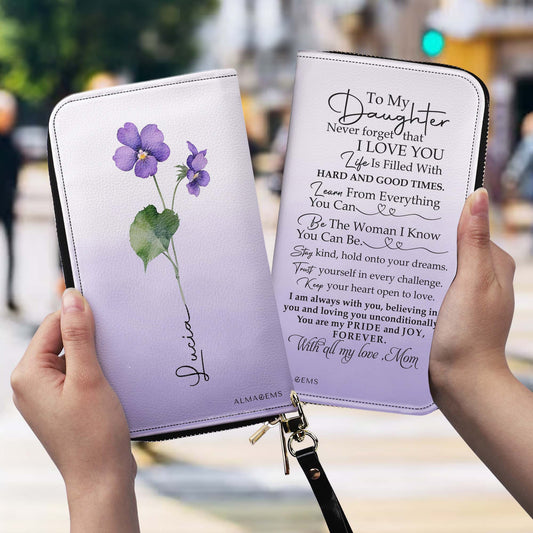 Lucia
ALMAGEMS
To My
Daughter
Never forget that
I LOVE YOU
Life Is Filled With
HARD AND GOOD TIMES.
Learn From Everything
You Can
Be The Woman I Know
You Can Be.
Stay kind, hold onto your dreams.
Trust yourself in every challenge.
Keep your heart open to love.
I am always with you, believing in
you and loving you unconditionally
You are my PRIDE and JOY,
FOREVER.
With all my love ,Mom
ALMAGEMS